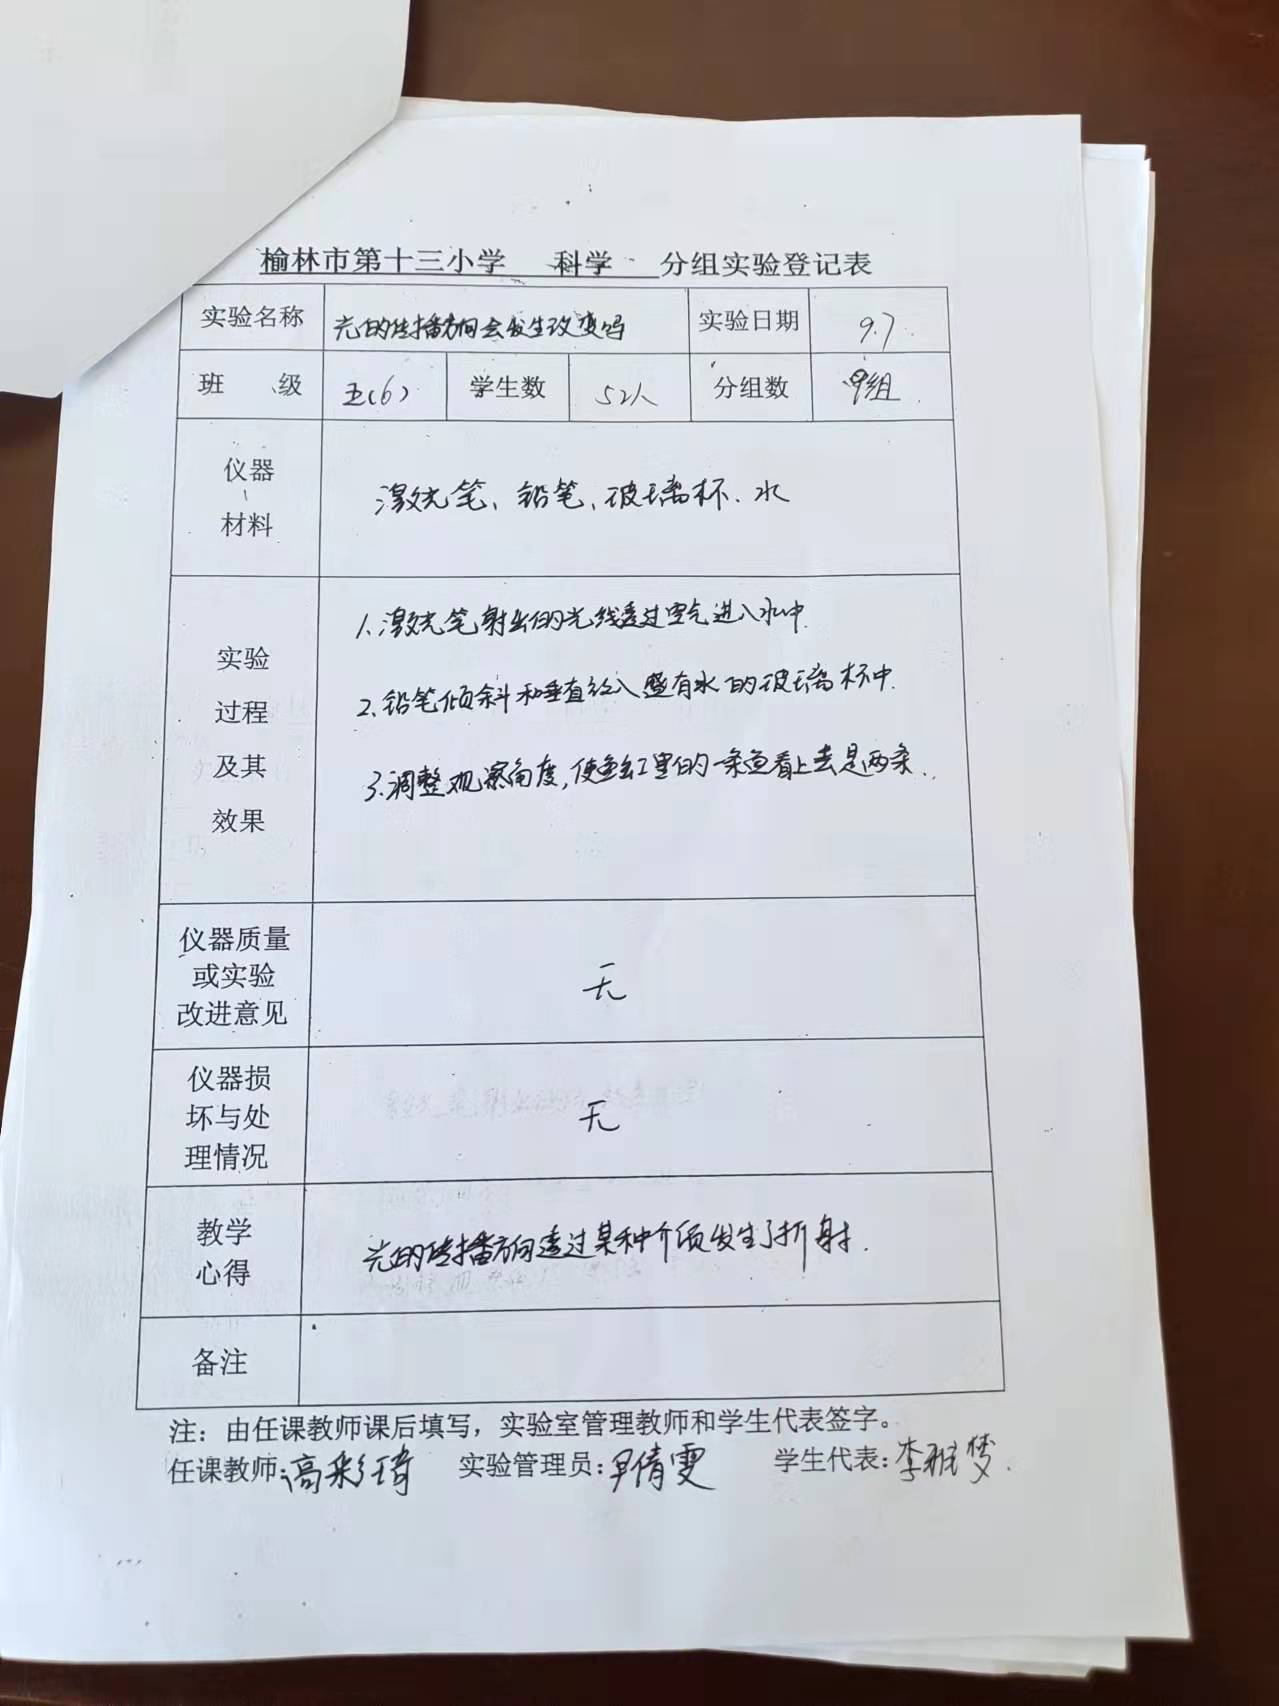 榆林市第十三小学 科学 分组实验登记表
实验名称 光的传播方向会发生改变吗 实验日期 9.7
班 级 五(6) 学生数 52人 分组数 9组
仪器
材料
激光笔、铅笔、玻璃杯、水
实验
过程
及其
效果
1.激光笔射出的光线透过空气进入水中.
2.铅笔倾斜和垂直放入盛有水的玻璃杯中.
3.调整观察角度,使鱼缸里的一条鱼看上去是两条.
仪器质量
或实验
改进意见
无
仪器损
坏与处
理情况
无
教学
心得
光的传播方向透过某种介质发生了折射.
备注
注：由任课教师课后填写，实验室管理教师和学生代表签字。
任课教师:高彩琦 实验管理员: 倩雯 学生代表:李雅梦